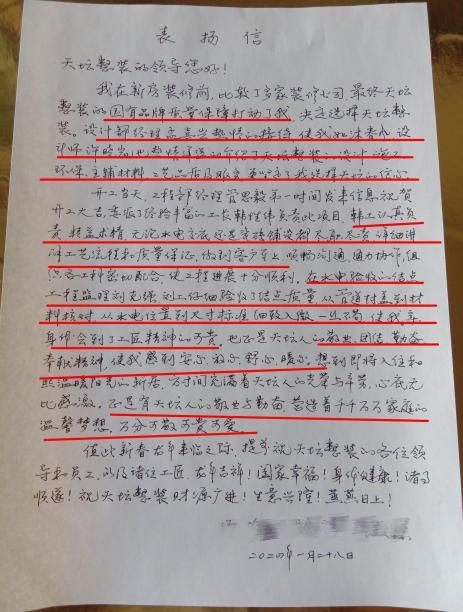 表扬信
天坛整装的领导您好！
我在新房装修前，比较了多家装修公司，最终天坛
整装的国有品牌质量保障打动了我，决定选择天坛整
装。设计部经理孟真诚热情的接待，使我如沐春风，设
计师许晓岩也热情详细的介绍了天坛整装，设计，施工
环保，主辅材料，工艺品质及服务，更坚定了我选择天坛的信心。
开工当天，工程部经理管思毅第一时间发来信息祝贺
开工大吉，委派了经验丰富的工长韩继伟负责此项目，韩工认真负
责，精益求精，无论水电交底还是瓷砖铺设都尽职尽责，详细讲
解工艺流程和质量保证，做到客户至上，顺畅沟通，通力协作，组
织各工种密切配合，使工程进展十分顺利。在水电验收的结点
工程监理刘克强，刘工仔细验收了结点质量，从管道封盖到材
料核对，从水电位置到尺寸标准细致入微，一丝不苟，使我亲
身体会到了工匠精神的可贵，也正是天坛人的敬业、团结、勤奋
奉献精神，使我感到安心，放心，舒心，暖心，想到即将入住和
煦温暖阳光的新居，房间充满着天坛人的光荣与辛劳，心底无
比感激。还是有天坛人的敬业与勤奋，营造着千千万万家庭的
温馨梦想，万分可敬可贵可爱。
值此新春龙年来临之际，提前祝天坛整装的各位领
导和员工，以及诸位工匠，龙年吉祥！阖家幸福！身体健康！诸事
顺遂！祝天坛整装财源广进！生意兴隆！蒸蒸日上！
二〇二四年一月二十八日